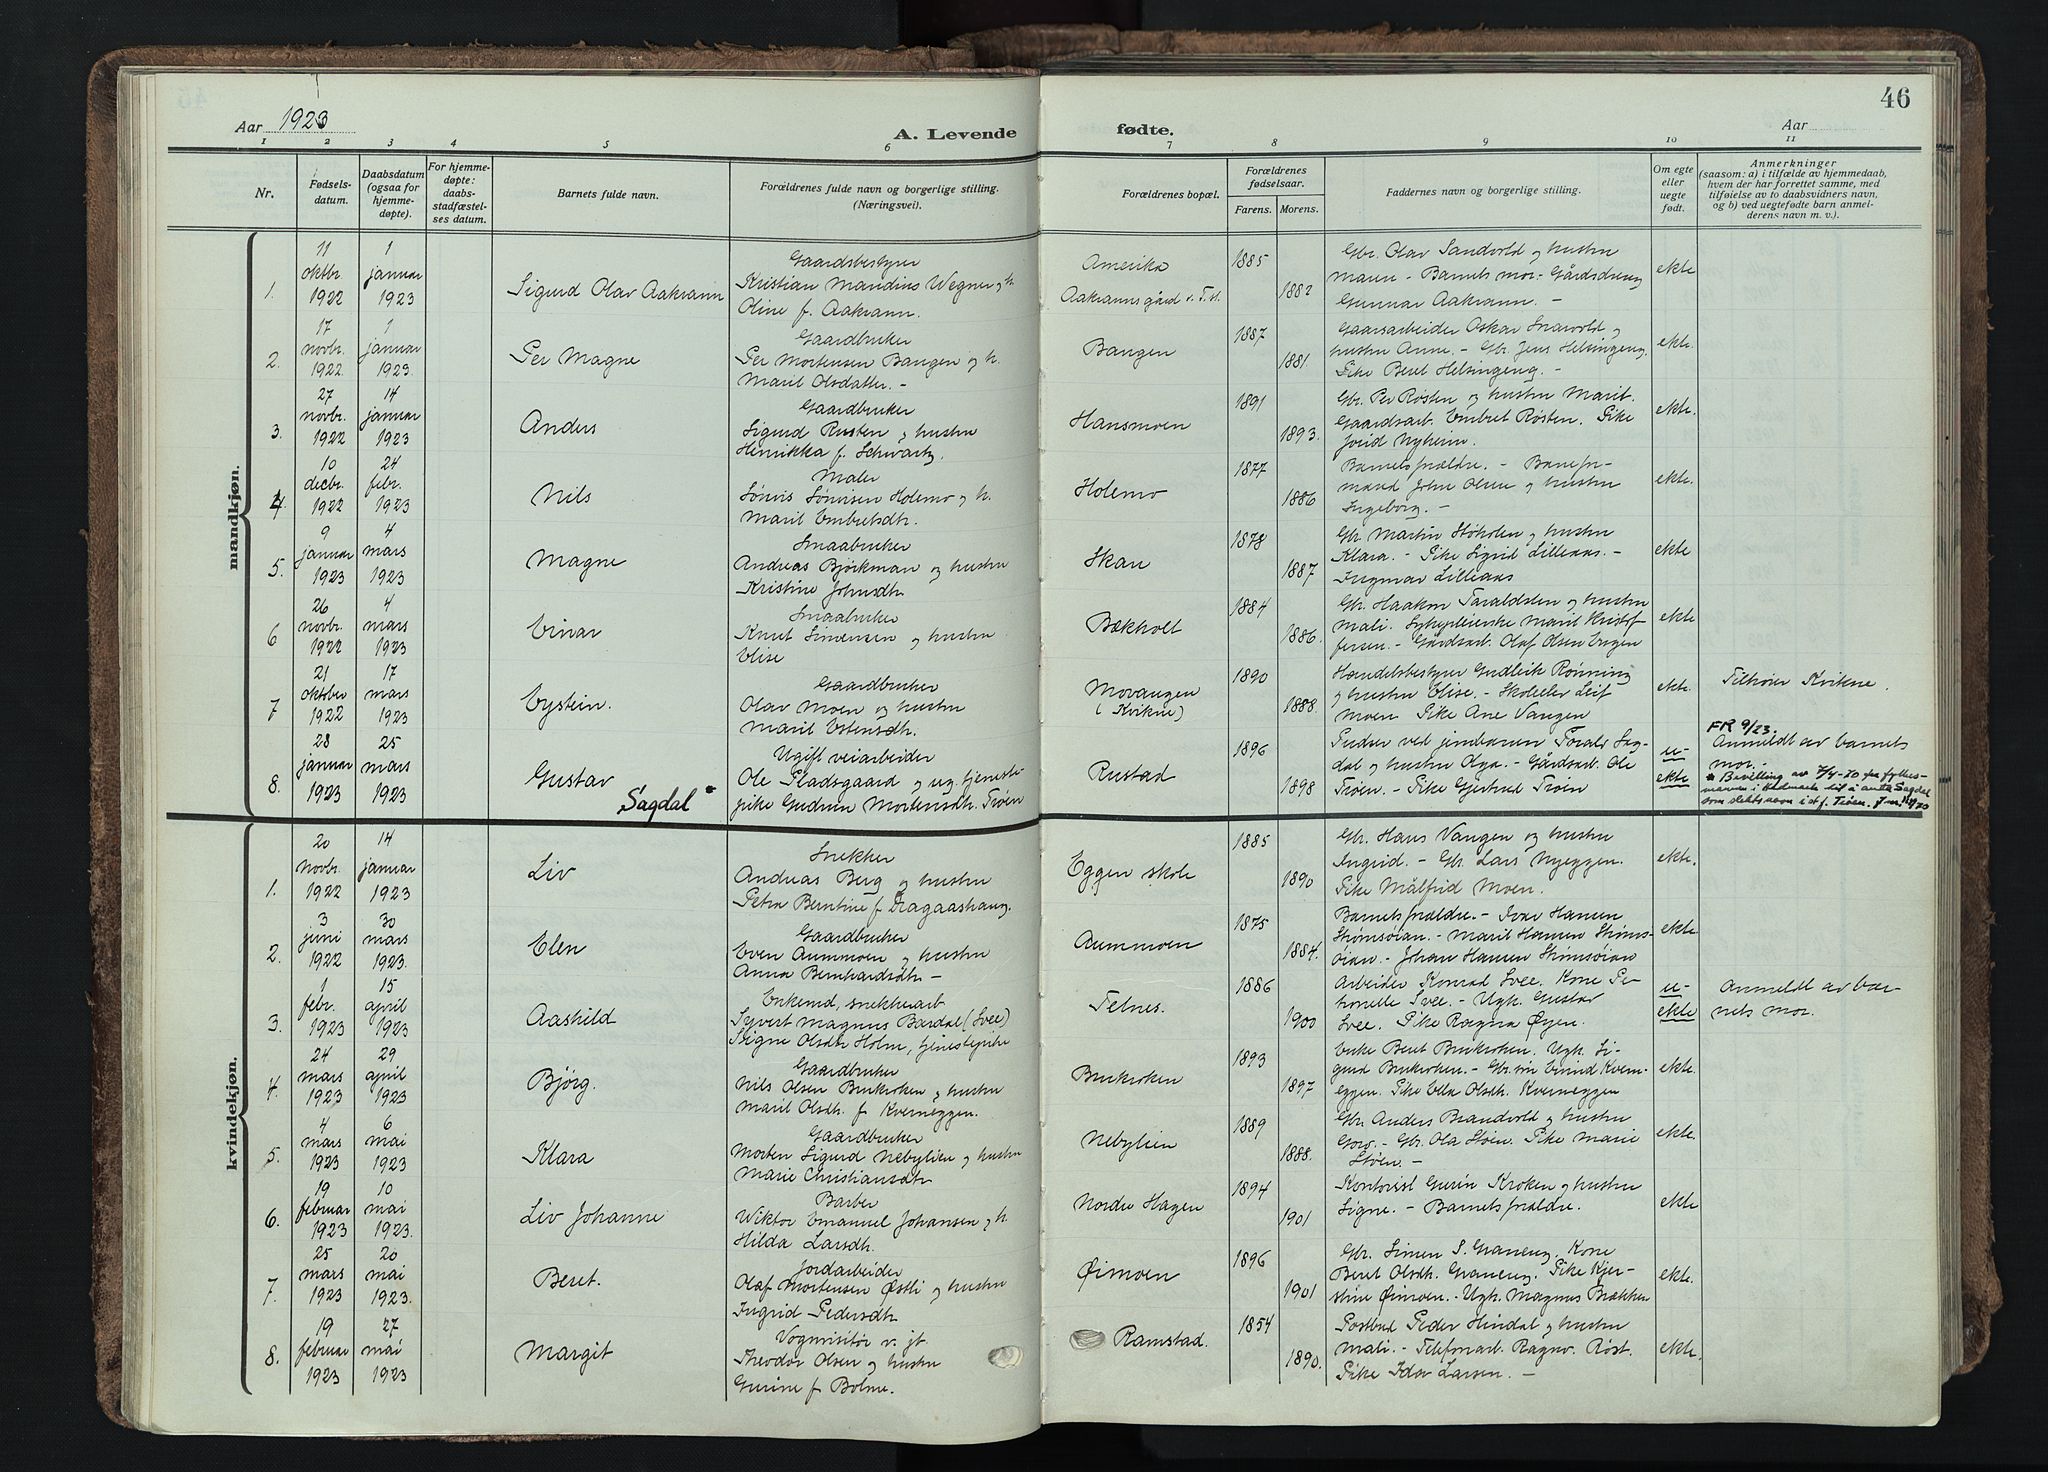 Aar 1923
A. Levende
fødte.
Aar
46
1 2 3 4 5 6 7 8 9 10 11
Nr.
Fødselsdatum.
Daabsdatum (ogsaa for hjemmedøpte).
For hjemmedøpte: daabsstadfæstelses datum.
Barnets fulde navn.
Forældrenes fulde navn og borgerlige stilling. (Næringsvei).
Forældrenes bopæl.
Forældrenes fødselsaar.
Farens. Morens.
Faddernes navn og borgerlige stilling.
Om egte eller uegte født.
Anmerkninger
(saasom: a) i tilfælde av hjemmedaab,
hvem der har forrettet samme, med
tilføielse av to daabsvidners navn,
og b) ved uegtefødte barn anmelderens navn m. v.).
mandkjøn.
1. 11 oktbr. 1922 1 januar 1923 Sigurd Olav Aakrann
Gaardsbestyrer
Kristian Mandius Wegner og h.
Oline f. Aakrann.
Amerika
Aakrannsgård v. T. st.
1885 1882
Gbr. Olav Sandvold og hustru
Maren - Barnets mor - Gårdsdreng
Gunnar Aakrann. -
ekte
2. 17 novbr. 1922 1 januar 1923. Per Magne
Gaardbruker
Per Mortensen Bangen og h.
Marit Olsdatter. -
Bangen
1887 1881.
Gaarsarbeider Oskar Snævold og
hustru Anne. - Gbr. Jens Helsingeng.
Pike Beret Helsingeng. -
ekte.
3. 27 novbr. 1922 14 januar 1923 Anders
Gaardbruker
Sigurd Rusten og hustru
Henrikka f. Schwartz.
Hansmoen
1891 1893.
Gbr. Per Røsten og hustru Marit.
Gaardsarb. Embret Røsten. Pike
Jorid Nyheim.
ekte.
4 10 decbr. 1922 24 febr. 1923 Nils
Maler
Sønvis Sønvisen Holemo og h.
Marit Embretsdtr.
Holemo
1877 1886
Barnets forældre. - Baneformand John Olsen og hustru
Ingeborg. -
ekte.
5. 9 januar 1923 4 mars 1923 Magne
Smaabruker
Andreas Bjørkman og hustru
Kristine Johnsdtr
Skan
1878 1887
Gbr. Martin Støholen og hustru
Klara. - Pike Sigrid Lilleaas. -
Ingmar Lilleaas
ekte
6 26 novbr. 1922 4 mars 1923 Einar
Smaabruker
Knut Simensen og hustru
Elise
Bækholt
1884 1886.
Gbr. Haakon Taraldsen og hustru
Mali. Sykepleierske Marit Kristoffersen. - Gårdsarb. Olaf Olsen Engen
ekte
7 21 oktober 1922 17 mars 1923 Eystein.
Gaardbruker
Olav Moen og hustru
Marit Estensdtr.
Movangen
(Kvikne)
1890 1888.
Handelsbestyrer Gudleik Rønning
og hustru Elise. - Skoleelev Leif
Moen Pike Ane Vangen
ekte.
Tilhører Kvikne.
8. 28 januar 1923 25 mars 1923 Gustav
Sagdal *
Ugift veiarbeider
Ole Pladsgaard og ug. tjenestepike Gudrun Mortensdtr. Trøen
Rustad
1896 1898
Pudser ved jernbanen Toralv Sagdal og hustru Olga. - Gårdsarb. Ole
Trøen. - Pike Gjertrud Trøen
uekte
FR 9/23.
Anmeldt av barnets
mor. -
* Bevilling av 7/4-70 fra fylkesmannen i Hedmark til å anta Sagdal
som slektsnavn i st. f. Trøen.
kvindekjøn.
1. 20 novbr. 1922 14 januar 1923 Liv
Snekker
Andreas Berg og hustru
Petra Berntine f. Dragaashaug.
Eggen skole
1885 1890
Gbr. Hans Vangen og hustru
Ingrid. - Gbr. Lars Nyeggen.
Pike Målfrid Moen.
ekte.
2. 3 juni 1922 30 mars 1923. Elen
Gaardbruker
Even Aummoen og hustru
Anna Bernhardsdtr -
Aummoen
1875 1884.
Barnets forældre. - Ivar Hansen
Strømsøian. - Marit Hansen Strømsøian. - Johan Hansen Strømsøian
ekte.
3. 1 febr. 1923 15 april 1923 Aashild
Enkemd, snekkerarb
Syvert Magnus Bardal (Svee)
Signe Olsdtr Holm, tjenestepike
Telnes.
1886 1900
Arbeider Konrad Svee. Kone Petronelle Svee. - Ugk. Gustav
Svee. Pike Ragna Øyen.
uekte
Anmeldt av barnets mor.
4. 24 mars 1923 29 april 1923 Bjørg.
Gaardbruker
Nils Olsen Brukroken og hustru
Marit Olsdtr. f. Kverneggen.
Brukroken
1893 1897
Enke Beret Brukroken. Ugk. Sigurd Brukroken. - Gbr.søn Eivind Kverneggen. Pike Elen Olsdtr. Kverneggen
ekte.
5. 4 mars 1923 6 mai 1923 Klara
Gaardbruker
Morten Sigurd Nebylien og hustru
Marie Christiansdtr
Nebylien
1889 1888.
Gbr. Anders Brandvold og hustru
Goro. - Gbr. Ola Støen. Pike Marie
Støen. -
ekte.
6. 19 februar 1923 10 mai 1923. Liv Johanne
Barber
Wiktor Emanuel Johansen og h.
Hilda Larsdtr.
Nordre Hagen
1894 1901
Kontorist Gurin Kroken og hustru
Signe. - Barnets forældre.
ekte
7. 25 mars 1923 20 mai 1923. Beret.
Jordarbeider
Olaf Mortensen Østli og hustru
Ingrid Pedersdtr
Øimoen
1896 1901
Gbr. Simen S. Graneng. Kone
Beret Olsdtr. Graneng. Pike Kjerstine Øimoen. - Ugk. Magnus Brækken
ekte.
8. 19 februar 1923 27 mai 1923 Margit
Vognvisitør v. jt.
Theodor Olsen og hustru
Gurine f. Bolme.
Ramstad.
1854 1890.
Postbud Peder Hindal og hustru
Mali. - Telefonarb. Ragnv. Røst.
Pike Ida Larsen. -
ekte.